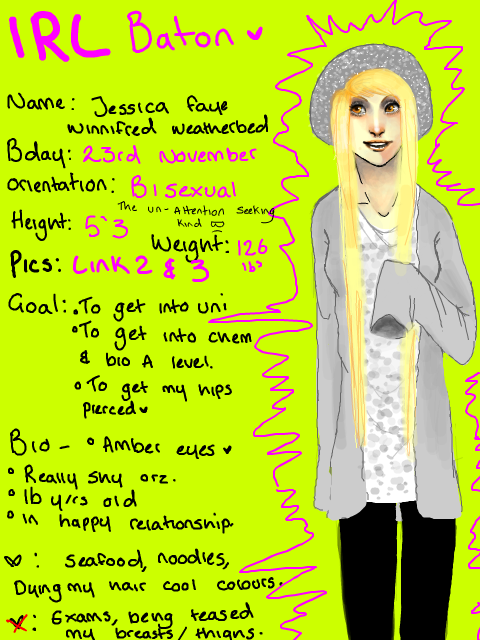 IRL Baton
Name: Jessica faye
Winnifred Weatherbed
Bday: 23rd November
Orientation: Bisexual
The un-Attention Seeking
Kind
Height: 5'3
Weight: 126
lbs
Pics: Link 2 & 3
Goal: • To get into uni
• To get into chem
& bio A level.
• To get my hips
pierced
Bio - • Amber eyes
• Really shy orz.
• 16 y/rs old
• in happy relationship.
: seafood, noodles,
Dying my hair cool colours.
: Exams, being teased
my breasts/thighs.